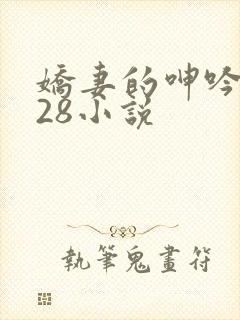 嬌妻的呻吟
28小説
執筆鬼畫符